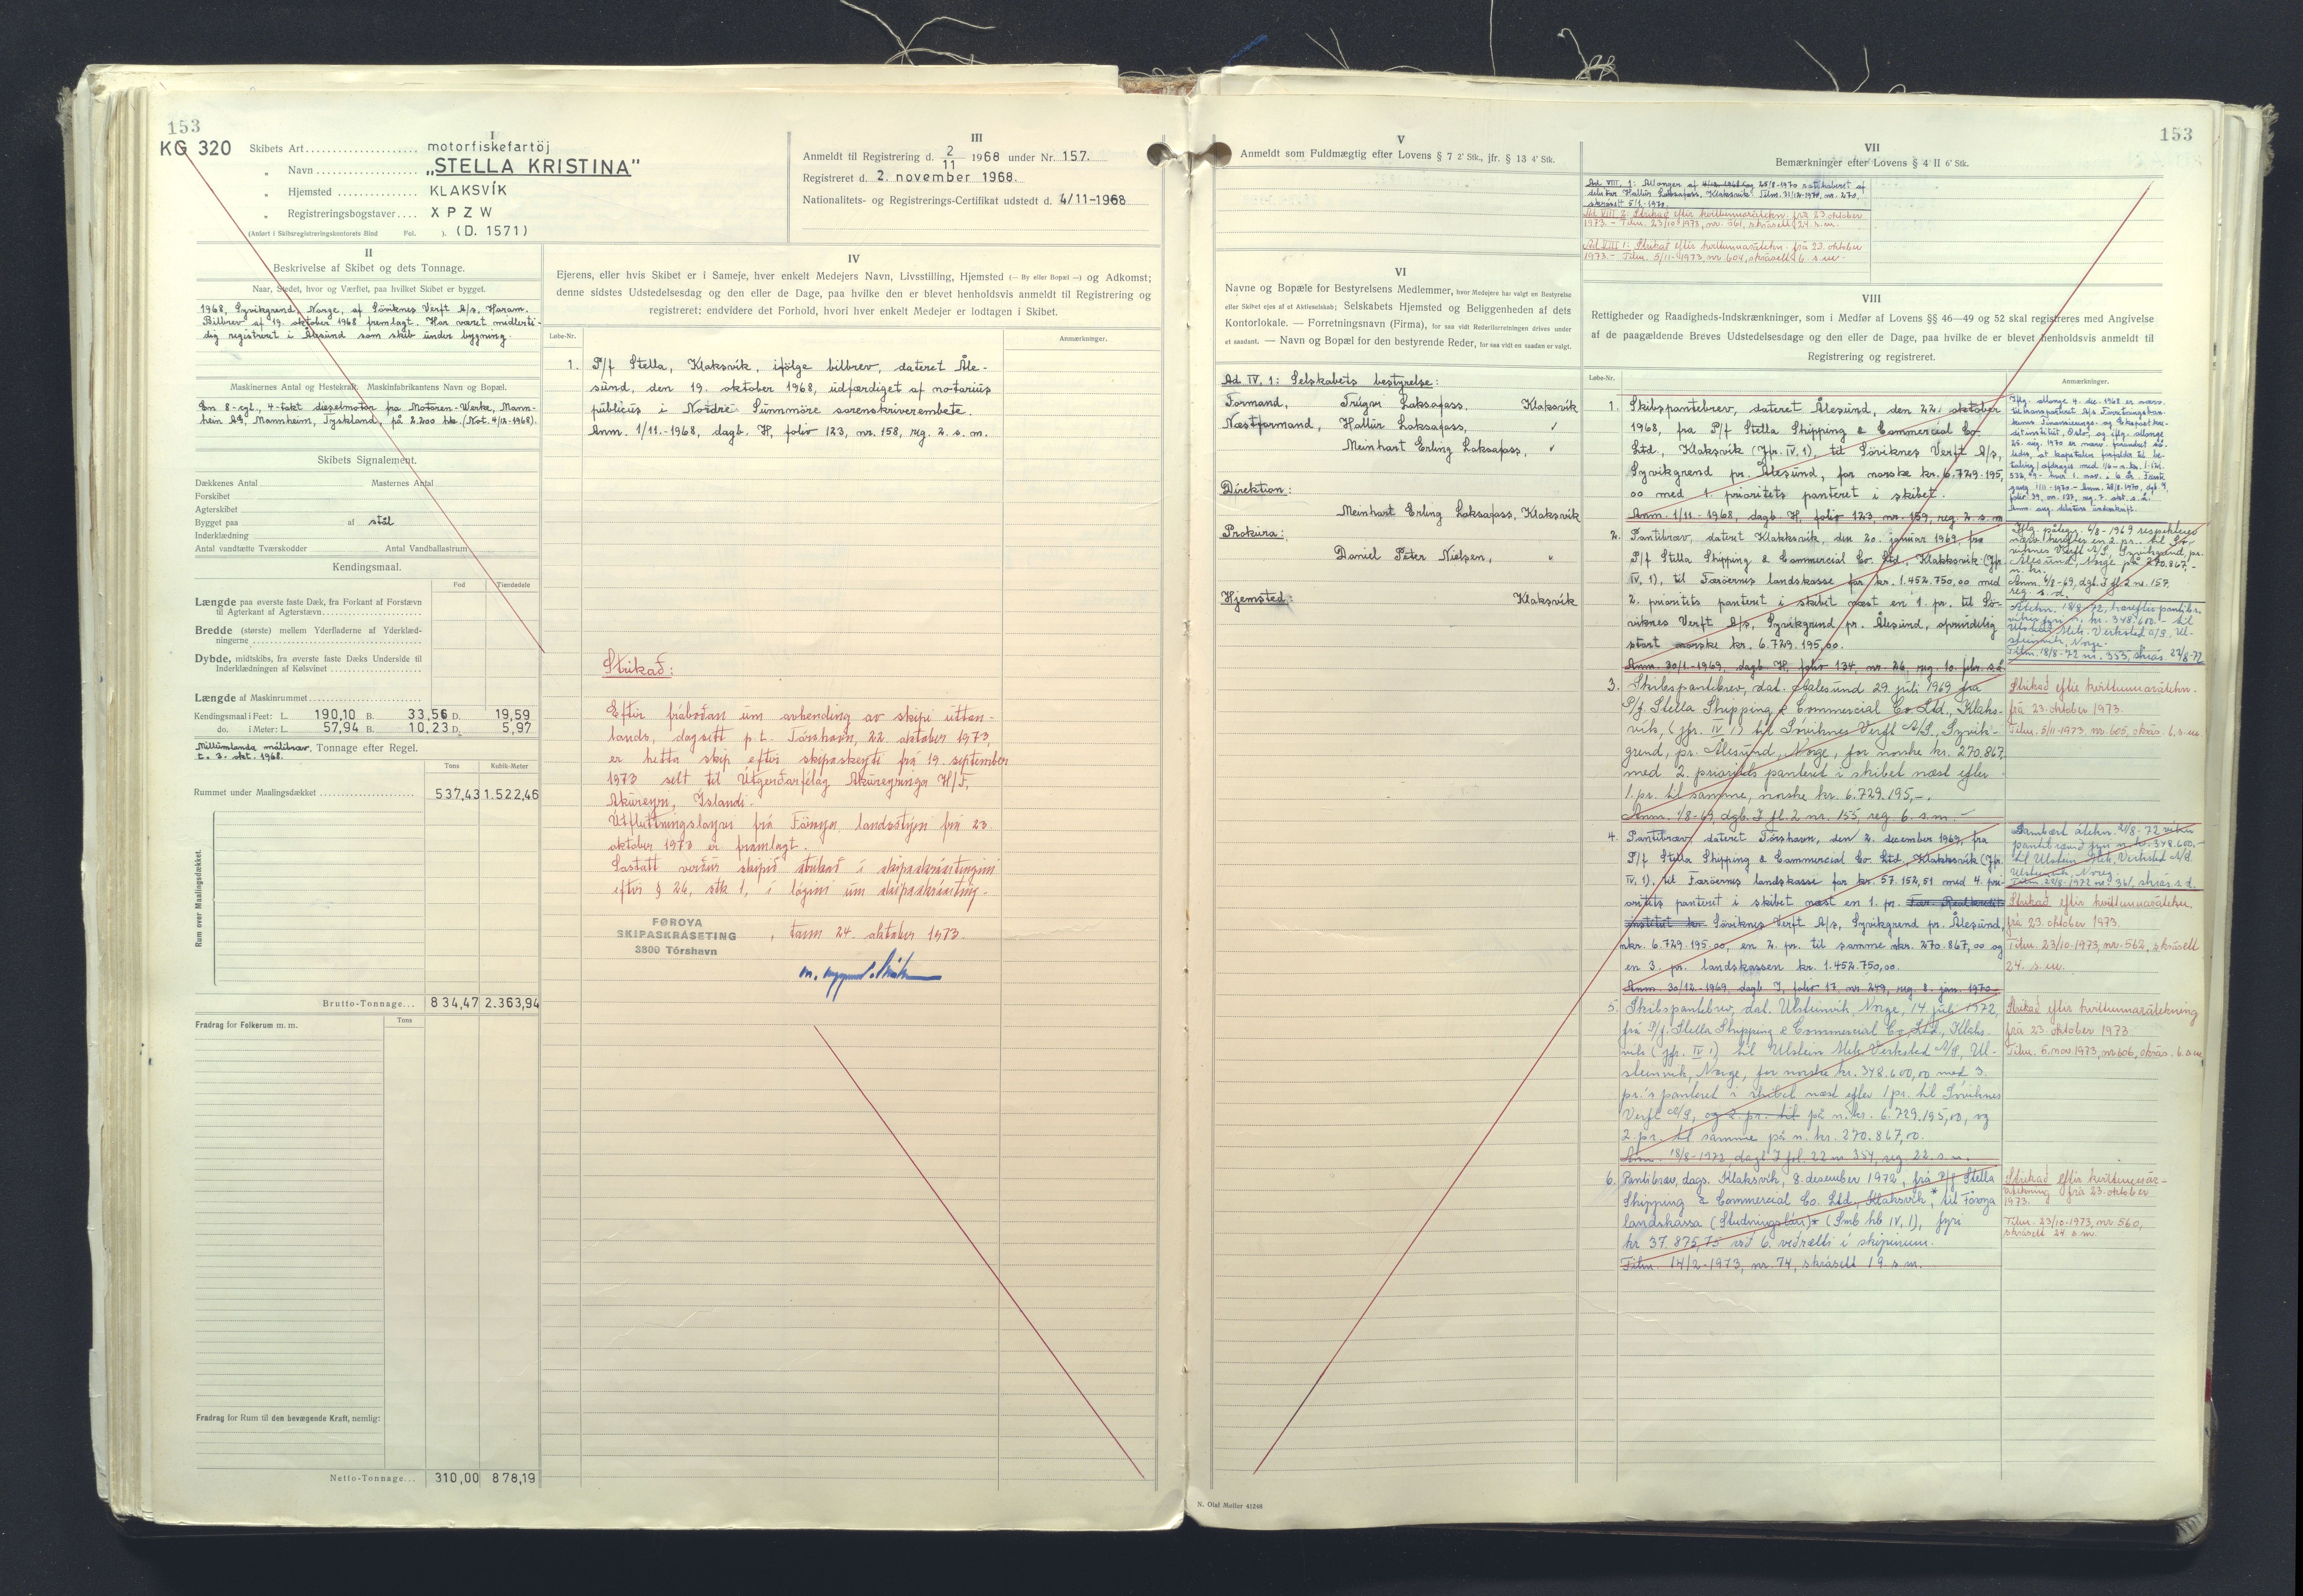 153
KG 320
I
Skibets Art motorfiskefartöj
„ Navn „STELLA KRISTINA"
„ Hjemsted KLAKSVÍK
„ Registreringsbogstaver XPZW
(Anført i Skibsregistreringskontorets Bind Fol. ). (D. 1571)
III
Anmeldt til Registrering d. 2/11 1968 under Nr. 157.
Registreret d. 2. november 1968.
Nationalitets- og Registrerings-Certifikat udstedt d. 4/11-1968
II
Beskrivelse af Skibet og dets Tonnage.
Naar, Stedet, hvor og Værftet, paa hvilket Skibet er bygget.
1968, Syvikgrend, Norge, af Söviknes Verft A/s, Haram.
Bilbrev af 19. oktober 1968 fremlagt. Har været midlerti-
dig registreret i Ålesund som skib under bygning.
Maskinernes Antal og Hestekraft. Maskinfabrikantens Navn og Bopæl.
En 8-cyl., 4-takt dieselmotor fra Motoren-Werke, Mann-
heim AG, Mannheim, Tyskland, på 2.200 hk. (Not. 4/12-1968).
Skibets Signalement.
Dækkenes Antal Masternes Antal
Forskibet
Agterskibet
Bygget paa af stål
Inderklædning
Antal vandtætte Tværskodder Antal Vandballastrum
Kendingsmaal.
Fod Tiendedele
Længde paa øverste faste Dæk, fra Forkant af Forstævn
til Agterkant af Agterstævn
Bredde (største) mellem Yderfladerne af Yderklæd-
ningerne
Dybde, midtskibs, fra øverste faste Dæks Underside til
Inderklædningen af Kølsvinet
Længde af Maskinrummet
Kendingsmaal i Feet: L. 190,10 B. 33,56 D. 19,59
do. i Meter: L. 57,94 B. 10,23 D. 5,97
Millumlanda málibræv. Tonnage efter Regel.
t. 3. okt. 1968.
Tons Kubik-Meter
Rummet under Maalingsdækket 537,43 1.522,46
Rum over Maalingsdækket.
Brutto-Tonnage 834,47 2.363,94
Fradrag for Folkerum m. m.
Tons
Fradrag for Rum til den bevægende Kraft, nemlig:
Netto-Tonnage 310,00 878,19
IV
Ejerens, eller hvis Skibet er i Sameje, hver enkelt Medejers Navn, Livsstilling, Hjemsted (— By eller Bopæl —) og Adkomst;
denne sidstes Udstedelsesdag og den eller de Dage, paa hvilke den er blevet henholdsvis anmeldt til Registrering og
registreret: endvidere det Forhold, hvori hver enkelt Medejer er lodtagen i Skibet.
Løbe-Nr.
Anmærkninger.
1. P/f Stella, Klaksvík, ifölge bilbrev, dateret Åle-
sund, den 19. oktober 1968, udfærdiget af notarius
publicus i Nordre Sunnmöre sorenskriverembete.
Anm. 1/11-1968, dagb. H, folio 123, nr. 158, reg. 2. s. m.
Strikað:
Eftir fráboðan um avhending av skipi uttan-
lands, dagsett p.t. Tórshavn, 22. oktober 1973,
er hetta skip eftir skipaskeyti frá 19. september
1973 selt til Útgerðarfélag Akureyringa H/F,
Akureyri, Íslandi.
Útflutningsloyvi frá Föroya landsstýri frá 23.
oktober 1973 er framlagt.
Sostatt verður skipið strikað í skipaskrásetingini
eftir § 26, stk 1, í lógini um skipaskráseting.
FØROYA
SKIPASKRÁSETING
3800 Tórshavn
, tann 24. oktober 1973.
V
Anmeldt som Fuldmægtig efter Lovens § 7 2' Stk., jfr. § 13 4' Stk.
VI
Navne og Bopæle for Bestyrelsens Medlemmer, hvor Medejere har valgt en Bestyrelse
eller Skibet ejes af et Aktieselskab; Selskabets Hjemsted og Beliggenheden af dets
Kontorlokale. — Forretningsnavn (Firma), for saa vidt Rederiforretningen drives under
et saadant. — Navn og Bopæl for den bestyrende Reder, for saa vidt en saadan er valgt.
Ad IV. 1: Selskabets bestyrelse:
Formand, Trúgvi Laksafoss, Klaksvík
Næstformand, Hallur Laksafoss, "
Meinhart Erling Laksafoss, "
Direktion:
Meinhart Erling Laksafoss, Klaksvík
Prokura:
Daniel Peter Nielsen, "
Hjemsted: Klaksvík
153
VII
Bemærkninger efter Lovens § 4 II 6' Stk.
Ad VIII. 1: Allonger af 4/12-1968 og 25/8-1970 ratihaberet af
Hallur Laksafoss, Klaksvík. Tilm. 31/12-1970, nr. 270,
skrásett 5/1-1970.
Ad VIII. 2: Strikað eftir kvittunnarátekn. frá 23. oktober
1973. - Tilm. 23/10-1973, nr. 561, skrásett 24. s.m.
Ad VIII 1: Strikað eftir kvittunnarátekn. frá 23. oktober
1973. - Tilm. 5/11-1973, nr. 604, skrásett 6 s.m.
VIII
Rettigheder og Raadigheds-Indskrænkninger, som i Medfør af Lovens §§ 46—49 og 52 skal registreres med Angivelse
af de paagældende Breves Udstedelsesdage og den eller de Dage, paa hvilke de er blevet henholdsvis anmeldt til
Registrering og registreret.
Løbe-Nr.
Anmærkninger.
1. Skibspantebrev, dateret Ålesund, den 22. oktober
1968, fra P/f Stella Shipping & Commercial Co.
Ltd., Klaksvík (Jfr. IV, 1), til Söviknes Verft A/s,
Syvikgrend pr. Ålesund, for norske kr. 6.729.195,
00 med 1. prioritets panteret i skibet.
Anm. 1/11-1968, dagb. H, folio 123, nr. 159, reg. 2. s. m
Iflg. allonge 4. dec. 1968 er nærv.
25. aug. 1970 er nærv. forandret så-
ledes, at kapitalen forfalder til be-
2. Pantibræv, dateret Klaksvík, den 20. januar 1969, fra
P/f Stella Shipping & Commercial Co. Ltd., Klakksvík (Jfr.
IV, 1), til Færöernes landskasse for kr. 1.452.750,00 med
2. prioritets panteret i skibet næst en 1. pr. til Sö-
viknes Verft A/s, Syvikgrend pr. Ålesund, oprindelig
stort norske kr. 6.729.195,00.
Anm. 30/1-1969, dagb. H, folio 134, nr. 26, reg. 10. febr. s.å.
Iflg. påtegn. 6/8-1969 respekterer
nærv. herefter en 2. pr. til Sö-
viknes Verft A/S, Syvikgrend, pr.
Ålesund, Norge på 270.867,-
n. kr.
Anm. 6/8-69, dgb. I fl. 2 nr. 157.
reg. s. d.
Átekn. 18/8-72, hereftir pantibr.
víkur fyri n. kr. 348.600.- til
Ulstein Mek. Verksted A/S, Ul-
steinvik, Norge.
Tilm. 18/8-72 nr. 353, skrás. 22/8-72
3. Skibspantebrev, dat. Aalesund 29. juli 1969 fra
P/f. Stella Shipping & Commercial Co. Ltd., Klaks-
vík, (jfr. IV 1) til Söviknes Verft A/S, Syvik-
grend, pr. Ålesund, Norge, for norske kr. 270.867,
med 2. prioritets panteret i skibet næst efter
1. pr. til samme, norske kr. 6.729.195,-.
Anm. 1/8-69, dgb. I fl. 2 nr. 155, reg. 6. s.m. -
Strikað eftir kvittunnarátekn.
frá 23. oktober 1973.
Tilm. 5/11-1973, nr. 605, skrás. 6. s.m.
4. Pantibræv, dateret Tórshavn, den 2. december 1969, fra
P/f Stella Shipping & Commercial Co. Ltd., Klakksvík (Jfr.
IV, 1), til Færöernes landskasse for kr. 57.152,51 med 4. pri-
oritets panteret i skibet næst en 1. pr. Fær. Realkredit-
institut kr. Söviknes Verft A/s, Syvikgrend pr. Ålesund,
nkr. 6.729.195,00, en 2. pr. til samme nkr. 270.867,00 og
en 3. pr. landskassen kr. 1.452.750,00.
Anm. 30/12-1969, dagb. I, folio 17, nr. 249, reg. 8. jan. 1970
Sambært átekn. 21/8-72 víkur
pantibrævið fyri n. kr. 348.600,-
til Ulstein Mek. Verksted A/S.
Ulsteinvik, Noreg.
Tilm. 22/8-1972 nr. 361, skrás. s. d.
Strikað eftir kvittunnarátekn.
frá 23. oktober 1973.
Tilm. 23/10-1973, nr. 562, skrásett
24. s.m.
5. Skibspantebrev, dat. Ulsteinvik, Norge, 14. juli 1972,
frá P/f. Stella Shipping & Commercial Co. Ltd., Klaks-
vík (jfr. IV 1) til Ulstein Mek. Verksted A/S, Ul-
steinvik, Norge, for norske kr. 348.600,00 med 3.
pr.'s panteret i skibet næst efter 1 pr. til Söviknes
Verft A/S, og 2. pr. til på n. kr. 6.729.195,00, og
2. pr. til samme på n. kr. 270.867,00.
Anm. 18/8-1972, dagb. I fol. 22 nr. 354, reg. 22. s. m.
Strikað eftir kvittunnarátekning
frá 23. oktober 1973
Tilm. 5. nov. 1973, nr. 606, skrás. 6. s.m.
6. Pantibræv, dags. Klaksvík, 8. desember 1972, frá P/f Stella
Shipping & Commercial Co. Ltd, Klaksvík, * til Föroya
landskassa (Studningslán)* (Smb hb IV, 1), fyri
kr 37.875,75 við 6. veðrætti í skipinum.
Tilm. 14/2-1973, nr. 74, skrásett 19. s. m.
Strikað eftir kvittunnar-
átekning frá 23. oktober
1973.
Tilm. 23/10-1973, nr. 560,
skrásett 24. s. m.
N. Olaf Møller 41246